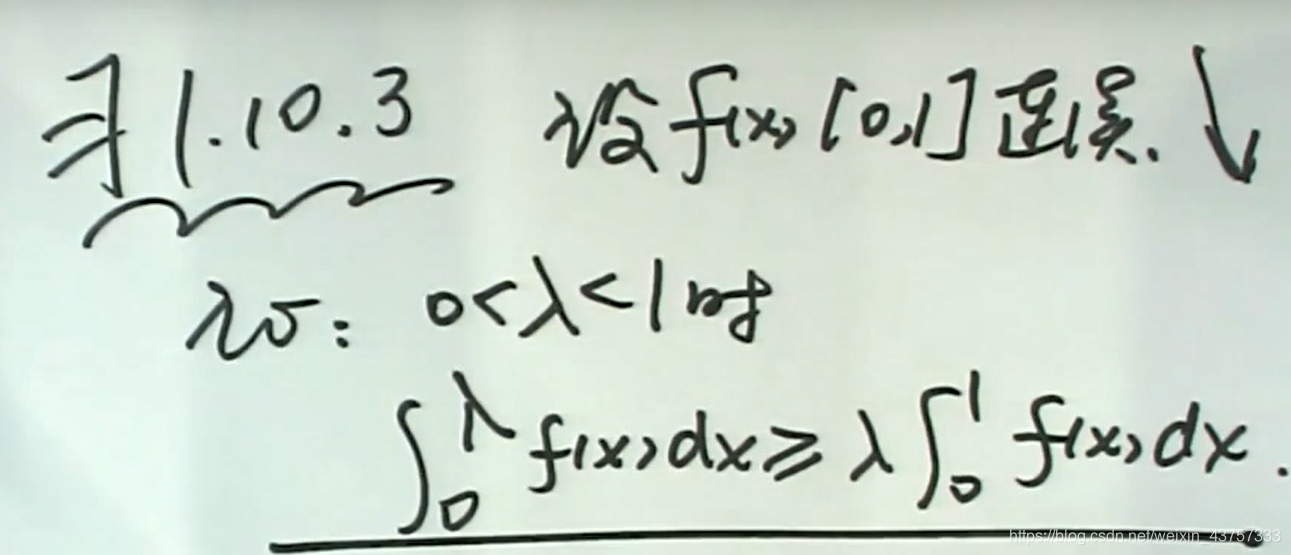 习1.10.3 设f(x)[0,1]连续.↓
证: 0<λ<1时
∫₀^λ f(x)dx ≥ λ∫₀¹ f(x)dx.
https://blog.csdn.net/weixin_43757333